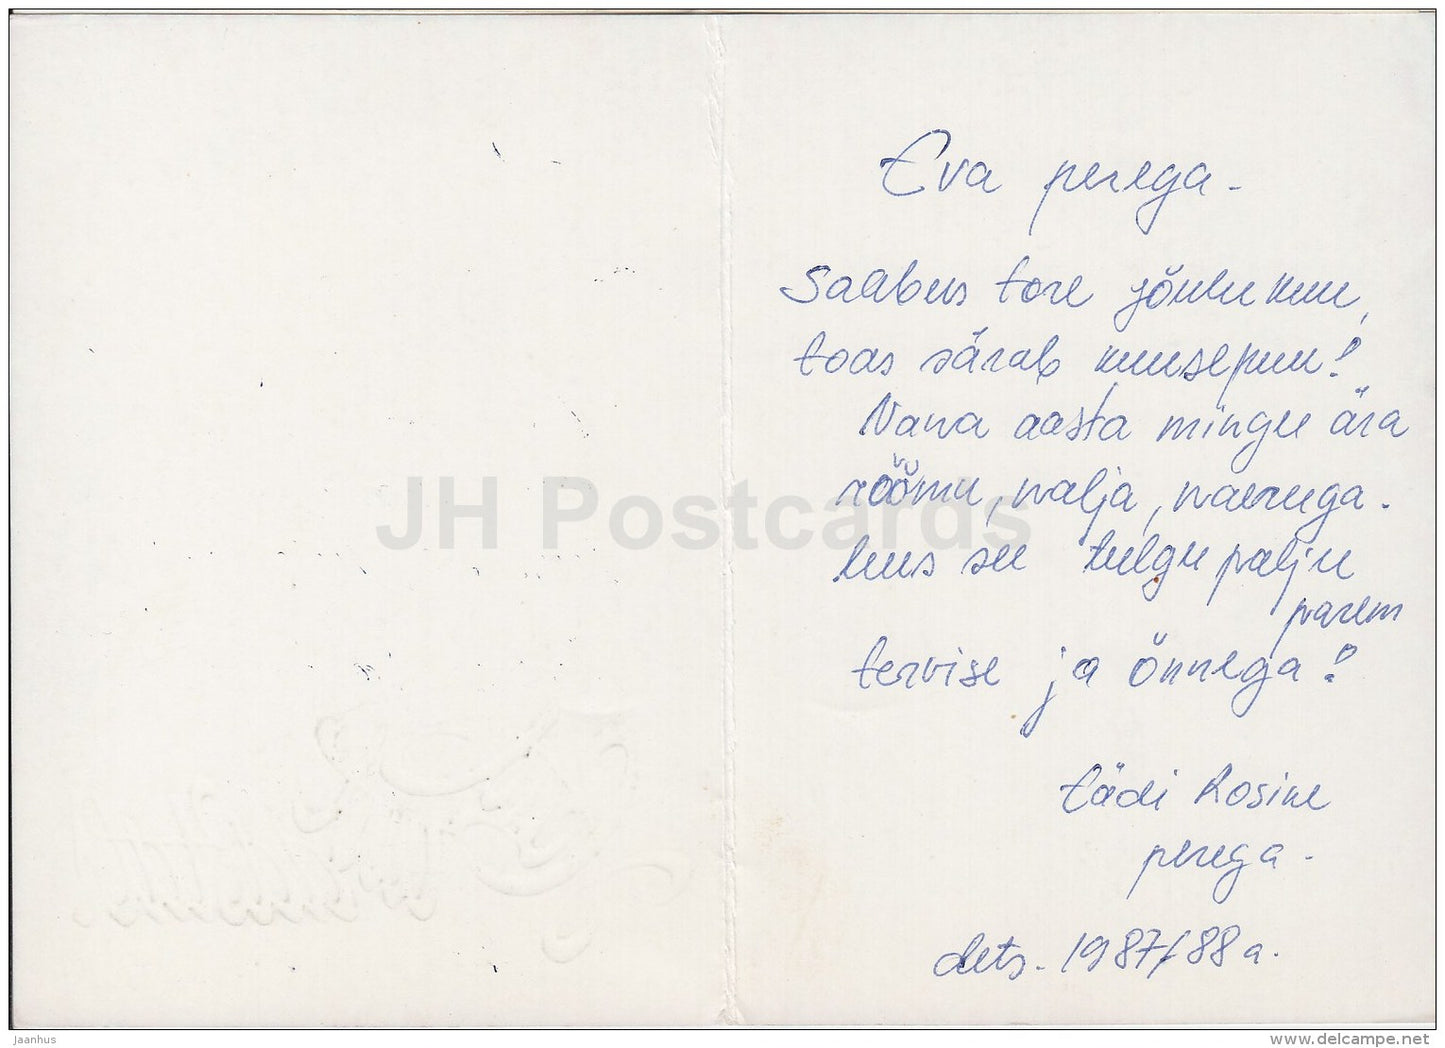 Eva perega -
Saabus tore jõulukuu,
toas särab kuusepuu!
Vana aasta mingu ära
rõõmu, nalja, naeruga.
Uus see tulgu palju
parem
tervise ja õnnega!
tädi Rosine
perega.
dets. 1987/88 a.
JH Postcards
jaanhus
www.delcampe.net